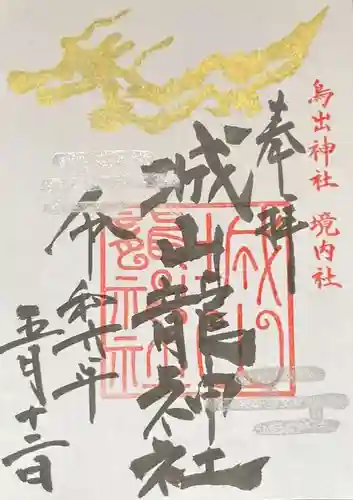 鳥出神社 境内社
奉拝
城山龍神社
令和六年
五月十二日